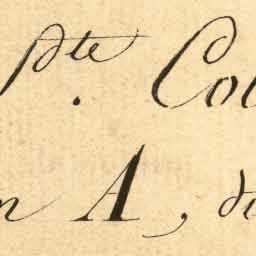 Pte. Col
n A, di